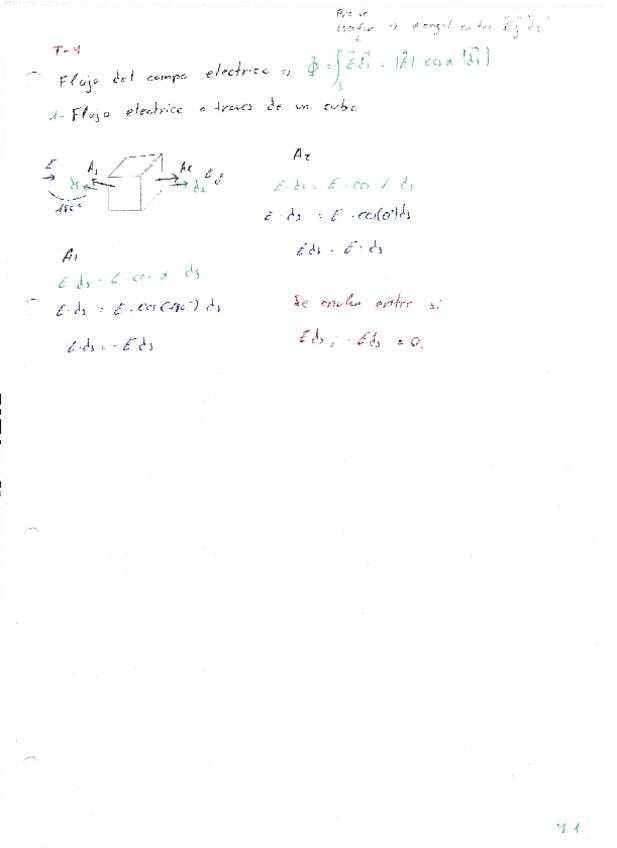 escalar → α angulo entre E⃗ y ds⃗
T-4
Flujo del campo electrico → Φ = ∫s E⃗ ds⃗ = |E⃗| cos α |ds⃗|
1- Flujo electrico a traves de un cubo
E A1 A2 E
ds ds
180°
A2
E·ds = E·cos α ds
E·ds = E·cos(0°)ds
Eds = E·ds
A1
E·ds = E·cos α ds
E·ds = E·cos(180°) ds
E·ds = -Eds
Se anulan entre si
Eds; -Eds = 0.
4.1